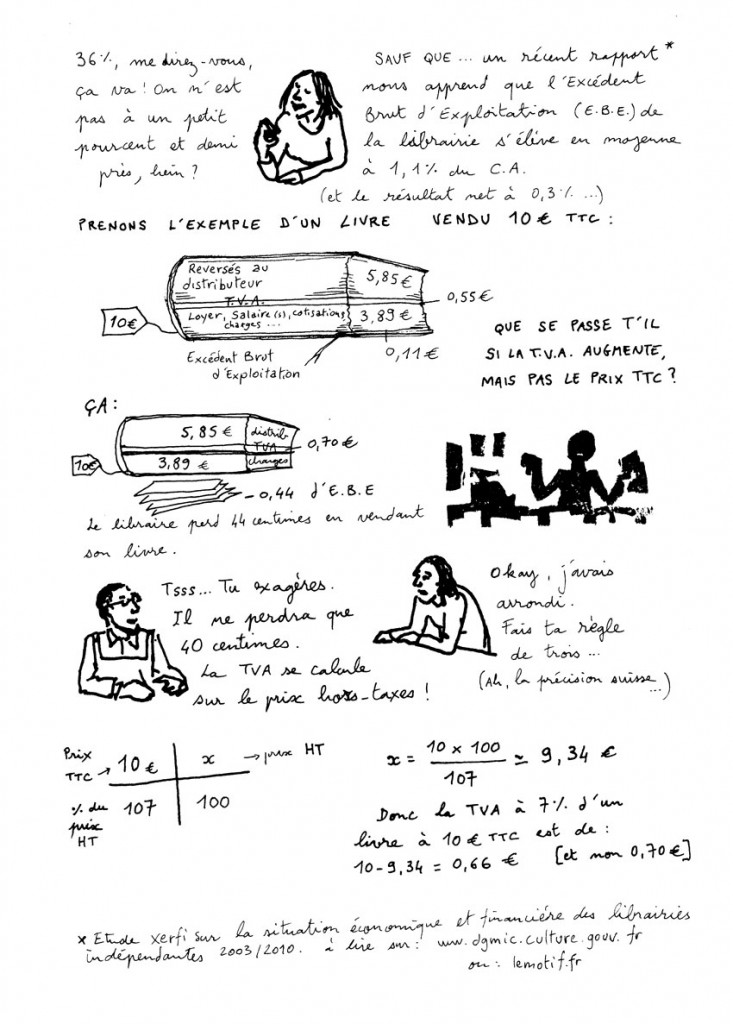 36%, me direz-vous,
ça va ! On n'est
pas à un petit
pourcent et demi
près, hein ?
SAUF QUE ... un récent rapport *
nous apprend que l'Excédent
Brut d'Exploitation (E.B.E.) de
la librairie s'élève en moyenne
à 1,1% du C.A.
(et le résultat net à 0,3% ...)
PRENONS L'EXEMPLE D'UN LIVRE VENDU 10 € TTC :
Reversés au
distributeur
5,85 €
T.V.A.
0,55 €
Loyer, Salaire(s), cotisations,
charges ...
3,89 €
10€
0,11 €
Excédent Brut
d'Exploitation
QUE SE PASSE T'IL
SI LA T.V.A. AUGMENTE,
MAIS PAS LE PRIX TTC ?
ÇA :
5,85 € distrib
TVA 0,70 €
10€ 3,89 € charges
-0,44 d'E.B.E
Le libraire perd 44 centimes en vendant
son livre.
Tsss... Tu exagères.
Il ne perdra que
40 centimes.
La TVA se calcule
sur le prix hors-taxes !
Okay, j'avais
arrondi.
Fais ta règle
de trois ...
(Ah, la précision suisse
...)
Prix
TTC → 10 € x → prix HT
% du
prix
HT
107 100
x = 10 x 100 / 107 ≃ 9,34 €
Donc la TVA à 7% d'un
livre à 10 € TTC est de :
10-9,34 = 0,66 € [et non 0,70 €]
* Etude xerfi sur la situation économique et financière des librairies
indépendantes 2003/2010. à lire sur : www.dgmic.culture.gouv.fr
ou : lemotif.fr